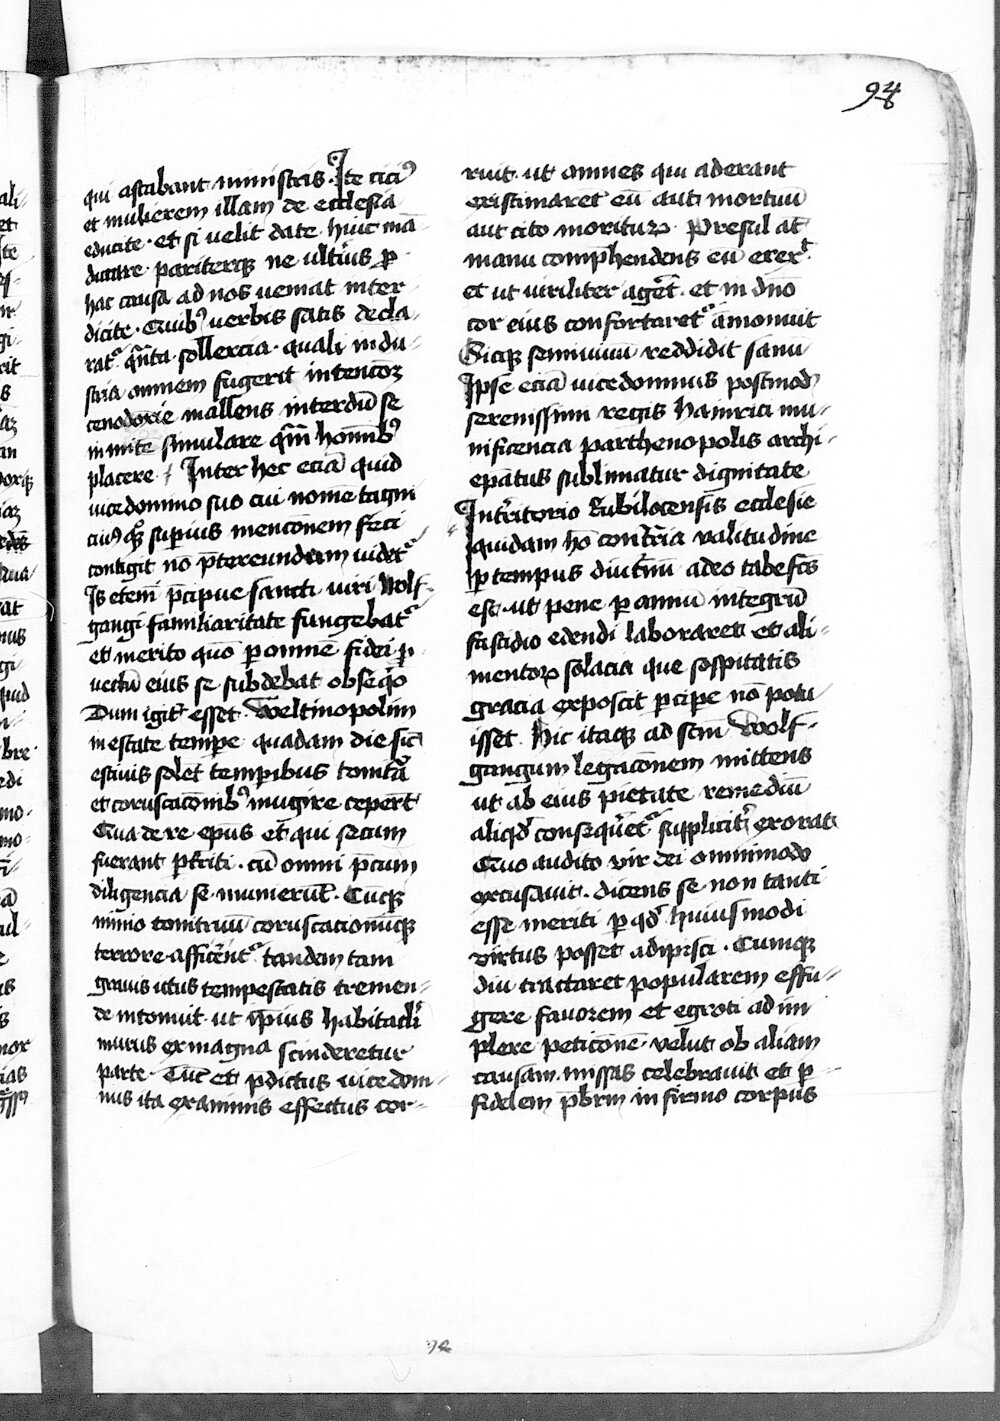 94
qui astabant ministris. Ite citi⁹
et mulierem illam de ecclesia
educite. et si velit date huic mā
ducare. pariterqꝫ ne ulti̾us ꝑ
hac causa ad nos veniat inter
dicite. Quibꝰ verbis satis decla
rat᷑. qn̄ta sollercia. quali indu
stria omnem fugerit intencōꝫ
mallens interdū se
simulare qm̄ hoīnibꝰ
placere. Inter hec eciā quid
vicedomino suo cui nomē tagni
ciuꝰ supius mencōnem feci
contigit nō p̄tereundum videt᷑
Is etenī p̄cipue sancti viri wolf
gangi familiaritate fungebat᷑
et merito quo ꝑ omnē fidei ꝓ
vectū eius se subdebat obseq̇o
Dum igit᷑ esset. weltinopolim
in estate tempe quadam die sic̄
estivis solet temꝑibus tonitrua
et coruscacōnibꝰ mugire ceper̄t
Qua de re epūs et qui secum
fuerant ꝑt̄riti. cū omni p̄cum
diligencia se munierūt. Cūqꝫ
nimio tonitruū coruscacionūqꝫ
terrore afficerent᷑ tandem tam
gravis ictus tempestatis tremen
de intonuit. ut ip̄ius habitacli
murus ex magna scinderetur
parte. Tūc et p̄dictus vicedom
nus ita exanimis effectus cor
ruit. ut omnes qui aderant
existimarēt eū aut mortuū
aut cito morituꝝ. Presul at̄
manu comp̄hendens eū erex̾t.
et ut viriliter ager̄t. et in dn̄o
cor eius confortaret᷑ āmonuit
Sicqꝫ semivivū reddidit sanū
Ipse eciā vicedomnus postmodū
serenissimi regis hainrici mu
nificencia parthenopolis archi
epātus sublimatur dignitate
In t̄ritorio Rubilocensis ecclesie
quidam hō cont̄ria valitudine
ꝑ tempus diut̄nū adeo tabefc̄s
est. ut pene ꝑ annū integrū
fastidio edendi laboraret et ali
mentoꝝ solacia que sospitatis
gracia exposcit ꝑcipe nō potu
isset. Hic itaqꝫ ad sc̄m Wolf
gangum legacōnem mittens
ut ab eius pietate remediū
aliqd̄ consequēt᷑ suppliciter exorat
Quo audito vir dei omnimodo
excusavit. dicens se non tanti
esse meriti ꝑ qd̄ huiusmodi
virtus posset adipisci. Cumqꝫ
diu tractaret popularem effu
gere favorem et egroti ad im
plere peticōnē. velut ob aliam
causam. missas celebravit et ꝑ
fidelem pb̄rm infirmo corpus
94